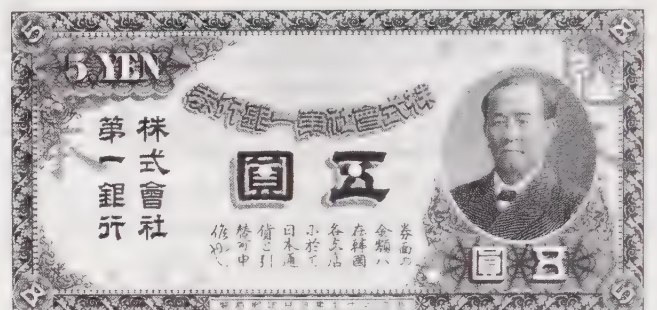 5 YEN
株式會社第一銀行券
五圓
株式會社
第一銀行
券面の
金額ハ
在韓國
各支店
ニ於て
日本通
貨と引
替可申
候也
五圓